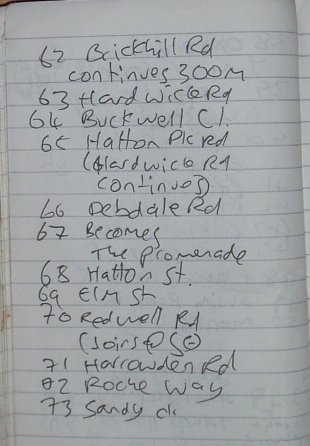 62 Brickhill Rd
continues 300m
63 Hardwick Rd
64 Buckwell Cl.
65 Hatton Pk Rd
(Hardwick Rd
continues)
66 Debdale Rd
67 Becomes
The Promenade
68 Hatton St.
69 Elm St
70 Redwell Rd
(joins @ 50)
71 Harrowden Rd
72 Roche Way
73 Sandy cl.